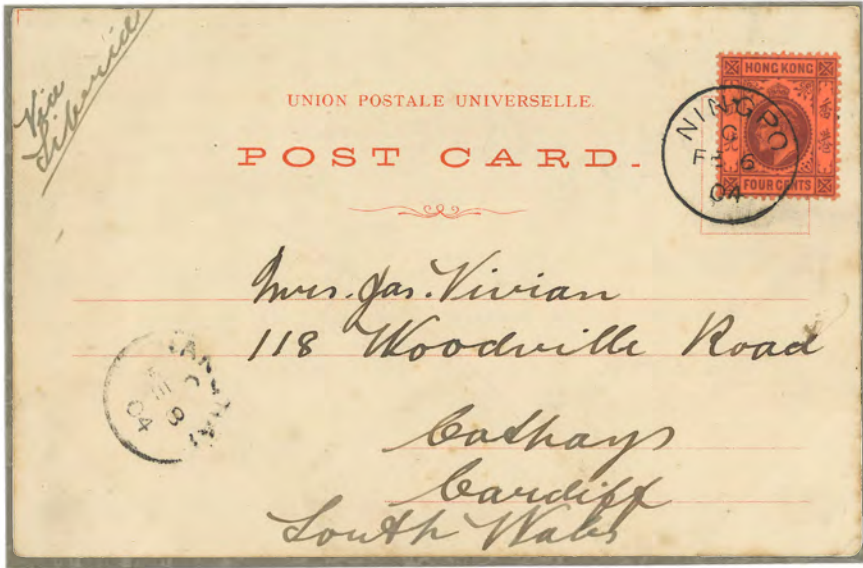 Via
Siberia
UNION POSTALE UNIVERSELLE.
POST CARD.
HONG KONG
FOUR CENTS
NINGPO
C
FE 6
04
Mrs. Jas. Vivian
118 Woodville Road
Cathays
Cardiff
South Wales
04